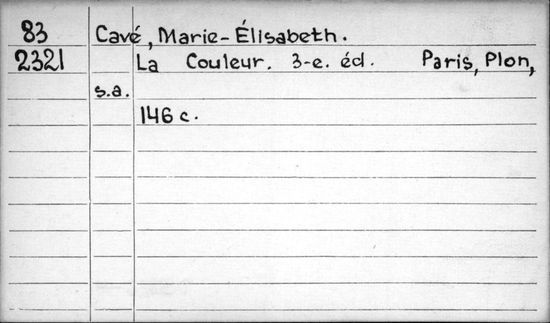 83 Cavé, Marie-Élisabeth.
2321 La Couleur. 3-e. éd. Paris, Plon,
s.a.
146 c.